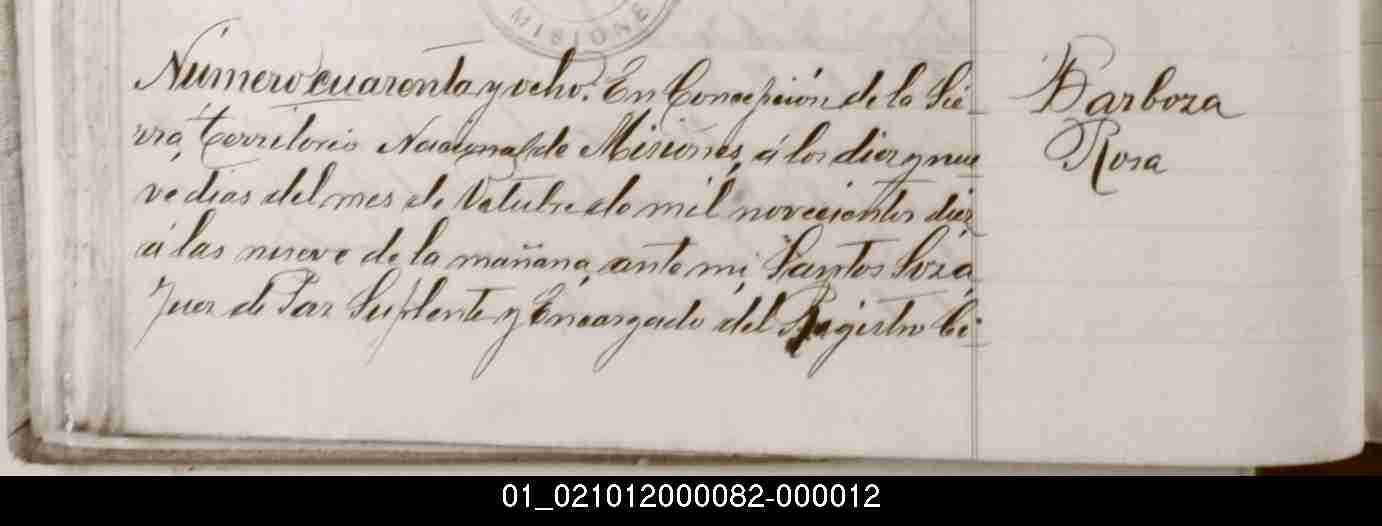 MISIONE
Numero cuarenta y ocho. En Concepción de la Sie-
rra, Territorio Nacional de Misiones, á los diez y nue
ve dias del mes de Octubre de mil novecientos diez
á las nueve de la mañana, ante mi, Santos Soza,
Juez de Paz Suplente y Encargado del Registro Ci-
Barboza
Rosa
01_021012000082-000012